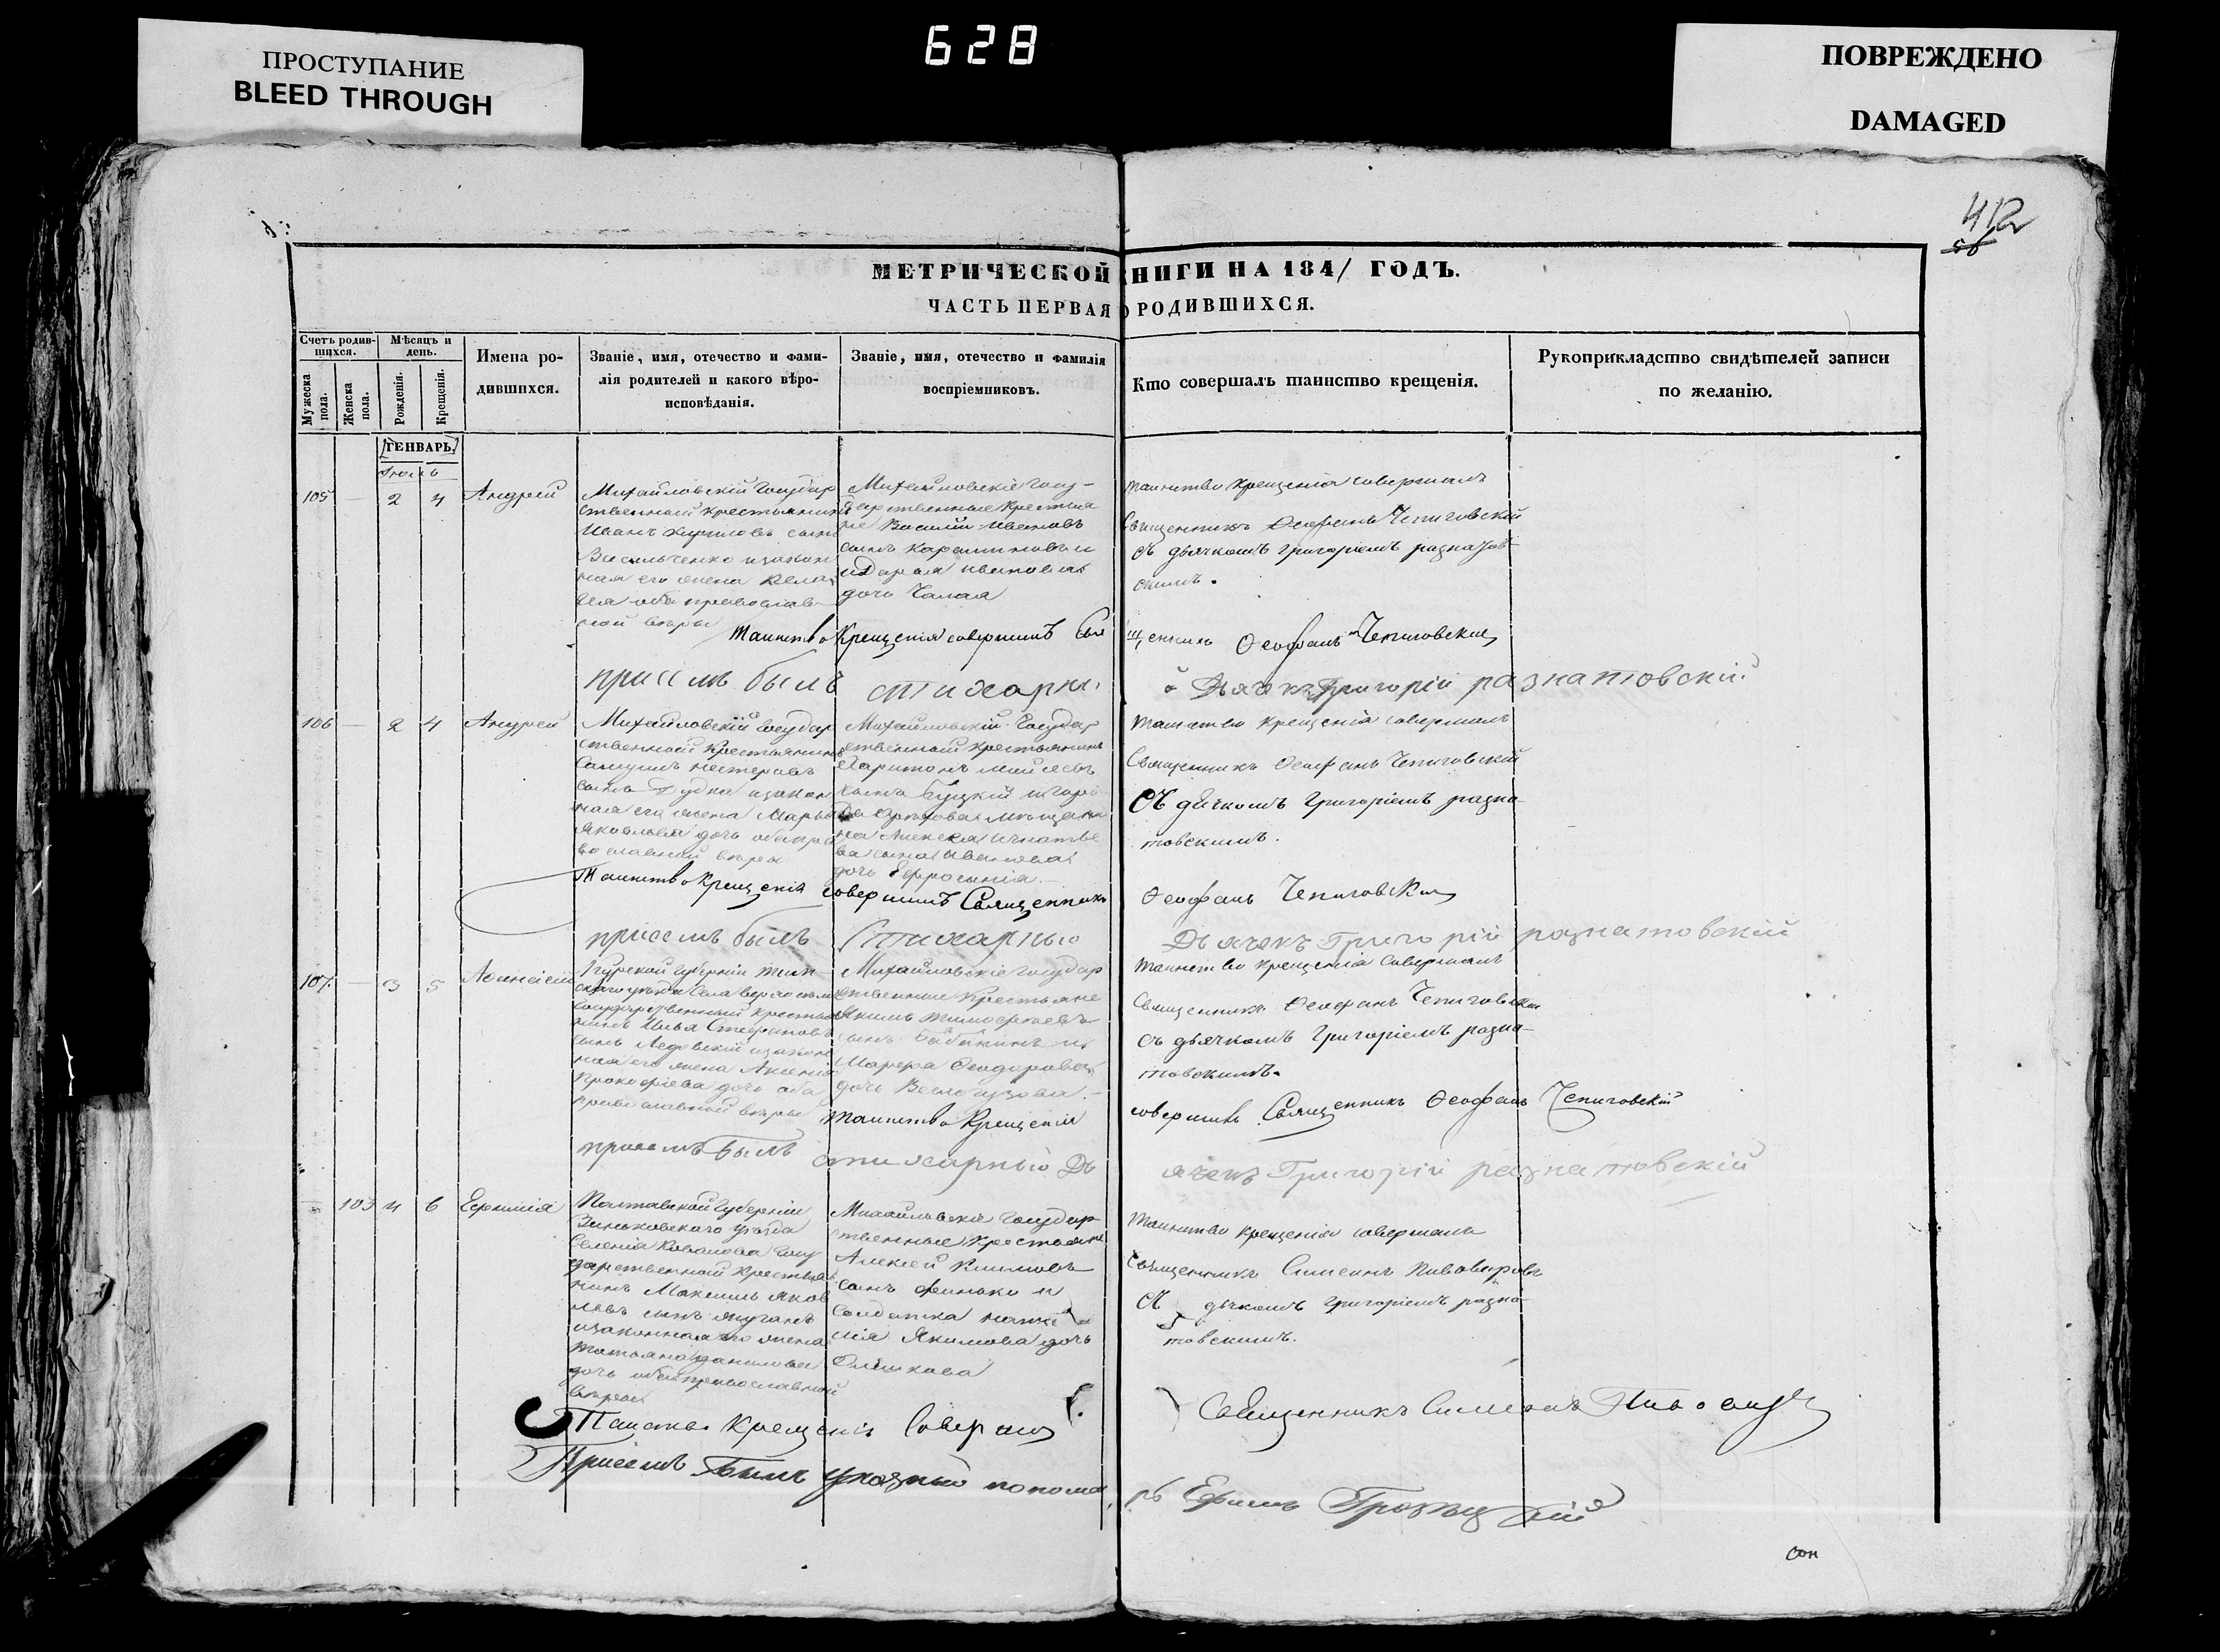 ПРОСТУПАНИЕ
BLEED THROUGH
628
ПОВРЕЖДЕНО
DAMAGED
412
МЕТРИЧЕСКОЙ КНИГИ НА 1841 ГОДЪ.
ЧАСТЬ ПЕРВАЯ О РОДИВШИХСЯ.
Счетъ родив-
шихся.
Мужеска пола.
Женска пола.
Мѣсяцъ и
день.
Рожденія.
Крещенія.
Имена ро-
дившихся.
Званіе, имя, отечество и фами-
лія родителей и какого вѣро-
исповѣданія.
Званіе, имя, отечество и фамилія
воспріемниковъ.
Кто совершалъ таинство крещенія.
Рукоприкладство свидѣтелей записи
по желанію.
ГЕНВАРЬ
105 — 2 4 Андрей
Михайловскій государ
ственный крестьянинъ
Иванъ Кириловъ сынъ
Васильченко и закон
ная его жена
оба православ-
ной вѣры
Михайловскіе госу-
дарственные крестья
не Василій Ивановъ
сынъ
и Дарья Иванова
дочь Чалая
таинство крещенія совершалъ
Священникъ Ѳеофанъ Чепиговскій
съ дьячкомъ Григоріемъ разнатов-
скимъ.
Таинство Крещенія совершилъ Свя
щенникъ Ѳеофанъ Чепиговскій
при семъ былъ стихарны
й Дьячекъ Григорій разнатовскій
106 — 2 4 Андрей
Михайловскій государ
ственной крестьянинъ
Самуилъ Нестеровъ
сынъ Дудка и закон
ная его жена Марья
Яковлева дочь оба пра
вославной вѣры
Михайловскій государ
ственной крестьянинъ
Харитонъ Моисеевъ
сынъ Буцкій и горо
да мѣщани
на Алексея Игнатье
ва сына Иванова
дочь Ефросинія.
таинство крещенія совершалъ
Священникъ Ѳеофанъ Чепиговскій
Съ дьячкомъ Григоріемъ разна-
товскимъ.
Таинство Крещенія совершилъ Священникъ
Ѳеофанъ Чепиговскій
при семъ былъ Стихарный
Дьячекъ Григорій разнатовскій
107. — 3 5 Аѳанасій
Курской губерніи Тим-
скаго уѣзда села
государственный крестья
нинъ Илья Стефановъ
сынъ Ледовскій и закон
ная его жена Аксенія
Прокофіева дочь оба
православной вѣры
Михайловскіе государ
ственные Крестьяне
Якимъ Тимофѣевъ
сынъ Бабанинъ и
Марѳа Ѳеодорова
дочь
таинство крещенія совершалъ
Священникъ Ѳеофанъ Чепиговскій
съ дьячкомъ Григоріемъ разна-
товскимъ.
Таинство Крещенія
совершилъ Священникъ Ѳеофанъ Чепиговскій
при семъ былъ стихарный Дь
ячекъ Григорій разнатовскій
— 103 4 6 Ефимія
Полтавской губерніи
Зиньковскаго уѣзда
Селенія Ковалева госу
дарственной крестья
нинъ Максимъ Яков
левъ сынъ
и законная его жена
Татьяна Данилова
дочь оба православной
вѣры
Михайловскіе государ-
ственные крестьяне
Алексей Климовъ
сынъ и
Солдатка
Якимова дочь
Олешкова
таинство крещенія совершалъ
Священникъ Симеонъ Пивоваровъ
Съ дьячкомъ Григоріемъ разна-
товскимъ.
Таинство Крещенія Совершилъ
Священникъ Симеонъ Пивоваровъ
При семъ былъ указный понома
рь Ефимъ